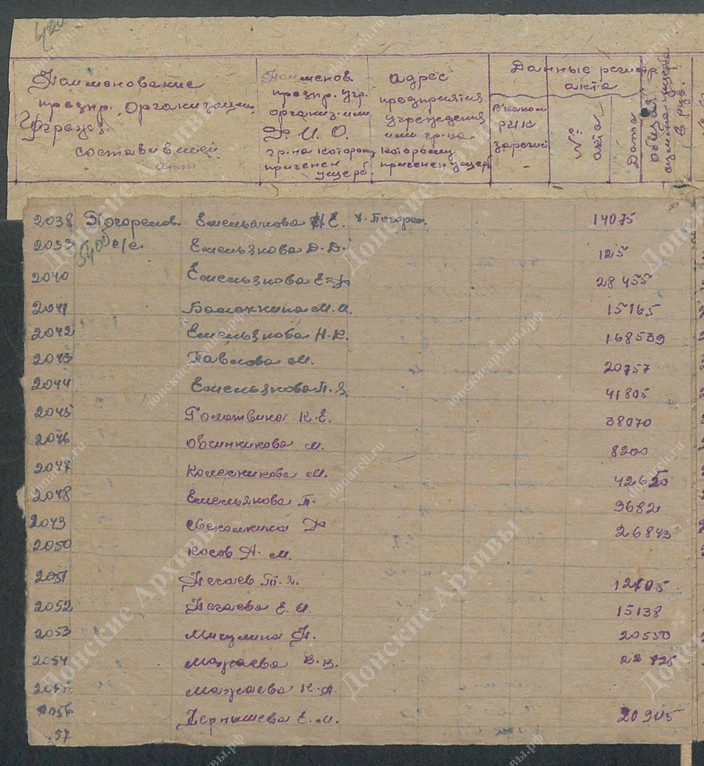 420
Наименование предпр. Организации Учрежд. составившей акт
Наименов. предпр. учр. организ. или Ф.И.О. гр-на которому причинен ущерб.
адрес предприятия учреждения или гр-на которому причинен ущерб
Данные регистр акта
№ акта
Дата
общая сумма ущерба в руб.
2038 Погорелов Емельянова Н.Е. х. Погорел. 14075
2039 с/с. Емельянова Д.Д. 125
2040 Емельянова 28455
2041 М.И. 15165
2042 Емельянова Н.К. 168539
2043 Павлова М. 20757
2044 Емельянова П.Я. 41805
2045 К.Е. 38070
2046 Овчинникова М. 8200
2047 Колесникова М. 42620
2048 Емельянова П. 9682
2049 26843
2050 Косов А.М.
2051 Негаев 12705
2052 Негаева Е.И. 15138
2053 20550
2054 Мажаева В.В. 22825
2055 Мажаева К.А.
2056 Чернышева Е.М. 20905
57
Донские Архивы
донскиеархивы.рф
donarch.ru